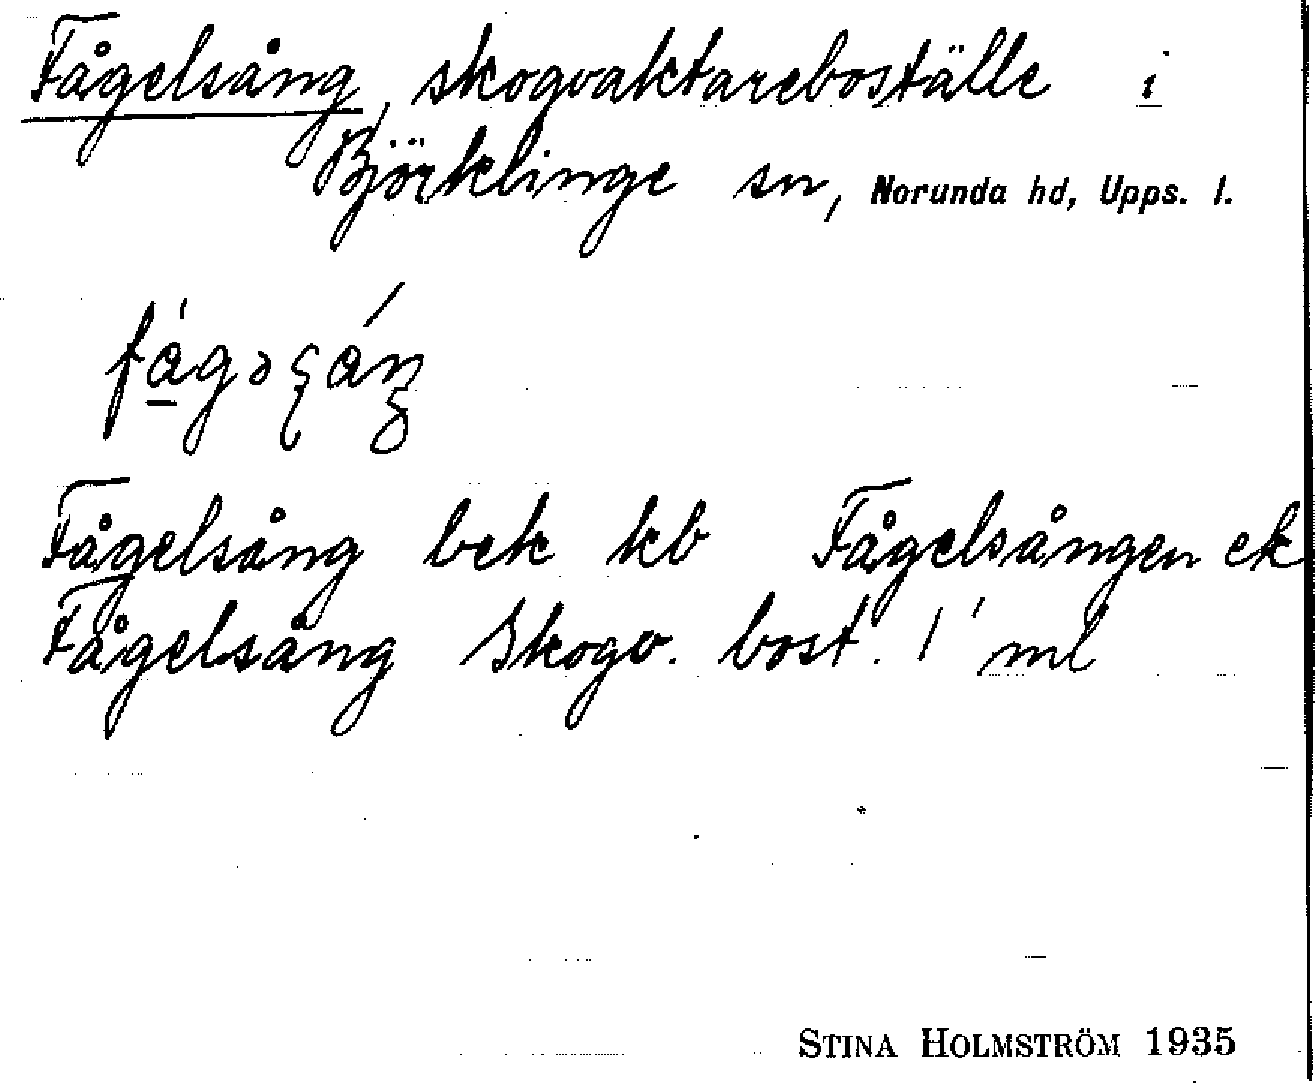 Fågelsång, skogvaktareboställe i
Björklinge sn, Norunda hd, Upps. l.
Fågelsång bek kb Fågelsången ek
Fågelsång Skogv. bost. 1' ml
STINA HOLMSTRÖM 1935